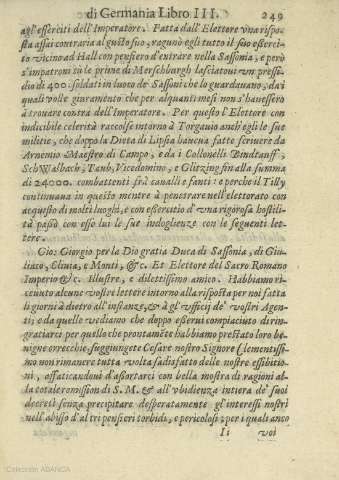 di Germania Libro III. 249
agl'esserciti dell'Imperatore. Fatta dall'Elettore vna rispo-
sta assai contraria al gusto suo, ragunò egli tutto il suo esserci-
to vicino ad Hall con pensiero d'entrare nella Sassonia, e però
s'impatronì su le prime di Merschburgh lasciatoui vn presi-
dio di 400. soldati in luoco de' Sassoni che lo guardauano, da i
quali volle giuramento che per alquanti mesi non s'hauessero
à trouare contra dell'Imperatore. Per questo l'Elettore con
indicibile celerità raccolse intorno à Torgauio anch'egli le sue
militie, che doppo la Dieta di Lipsia haueua fatte scriuere da
Arnemio Maestro di Campo, e da i Collonelli Bindtauff,
SchWalbach, Taub, Vicedomino, e Glitzing fin alla summa
di 24000. combattenti frà caualli e fanti: e perche il Tilly
continuaua in questo mentre à penetrare nell'elettorato con
acquisto di molti luoghi, e con essercitio d'vna rigorosa hostili-
tà passò con esso lui le sue indoglienze con le seguenti let-
tere.
Gio: Giorgio per la Dio gratia Duca di Sassonia, di Giu-
liaco, Cliuia, e Monti, &c. Et Elettore del Sacro Romano
Imperio &c. Illustre, e dilettissimo amico. Habbiamo ri-
ceuuto alcune vostre lettere intorno alla risposta per noi fatta
li giorni à dietro all'instanze, & à gl'vfficij de' vostri Agen-
ti; e da quelle vediamo che doppo esserui compiaciuto di rin-
gratiarci per quello che prontamẽte habbiamo prestato loro be-
nigne orecchie, suggiungete Cesare nostro Signore Clementissi-
mo non rimanere tutta volta sudisfatto delle nostre essibitio-
ni, affaticandoui d'assortarci con bella mostra di ragioni al-
la totale remission di S. M. & all'vbidienza intiera de' suoi
decreti senza precipitare desperatamente gl'interessi nostri
nell'abisso d'altri pensieri torbidi, e pericolosi; per i quali anco
Ii voi
Colección ABANCA